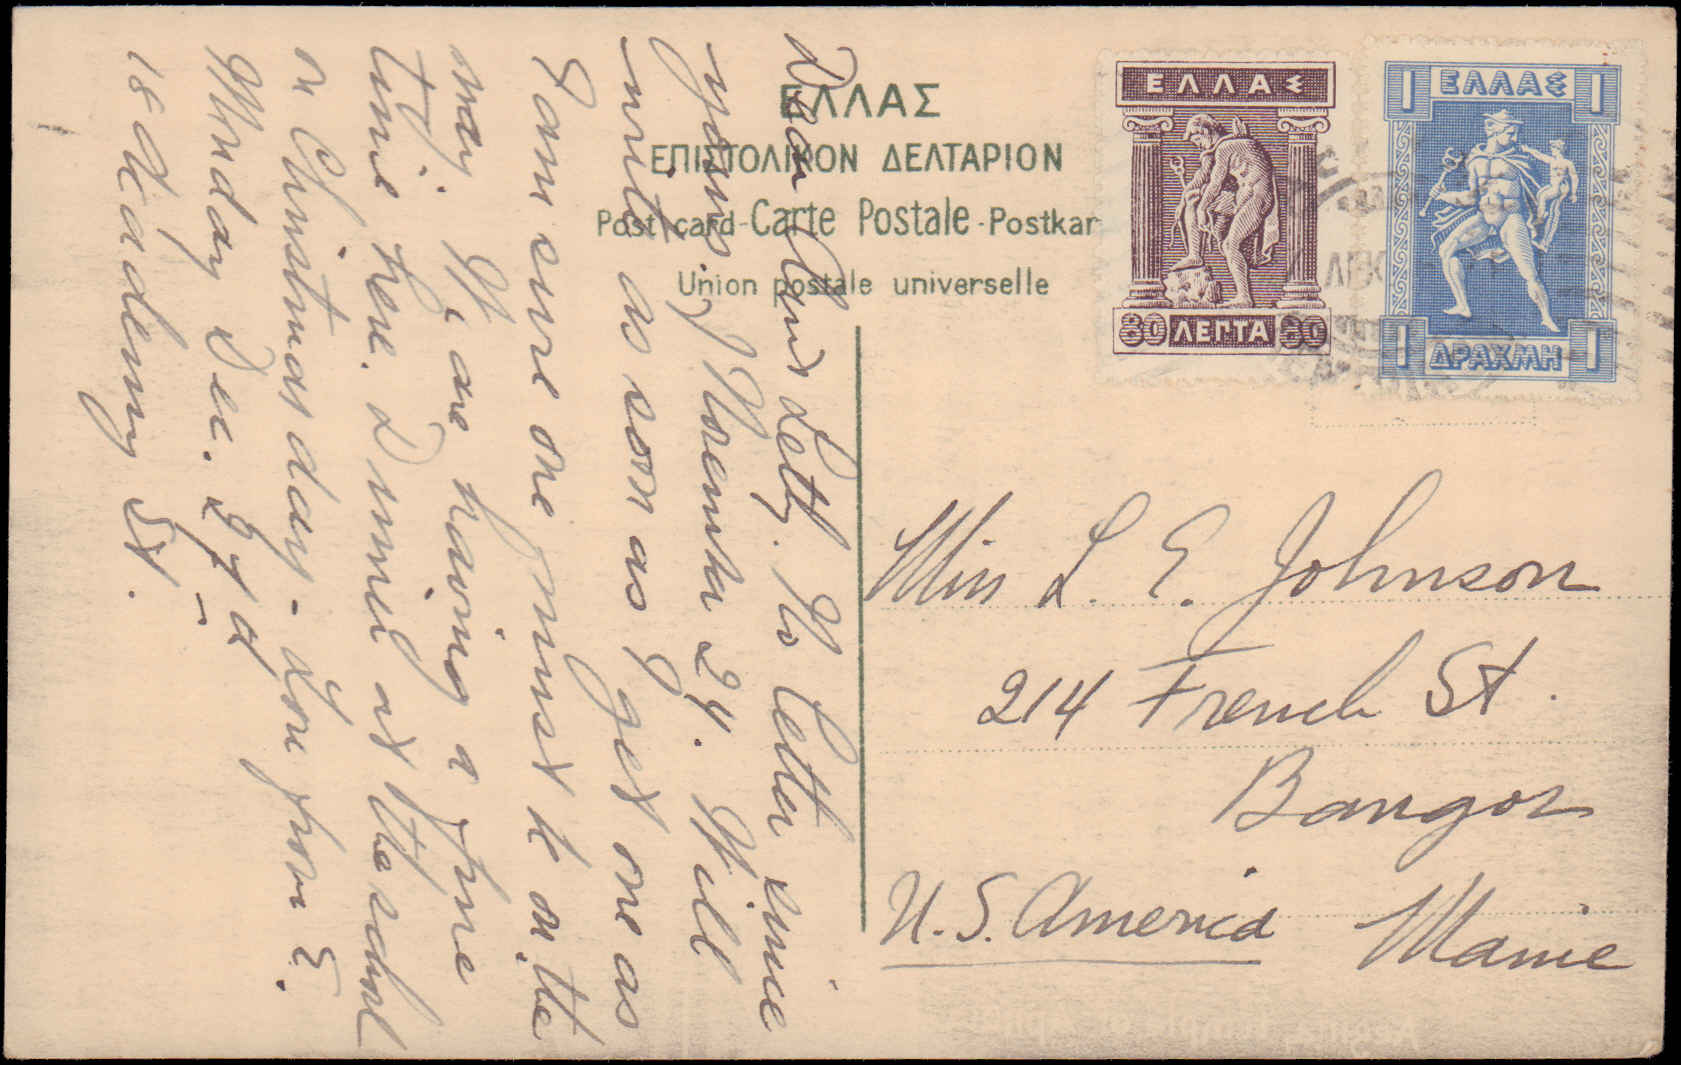 ΕΛΛΑΣ
ΕΠΙΣΤΟΛΙΚΟΝ ΔΕΛΤΑΡΙΟΝ
Post card - Carte Postale - Postkar
Union postale universelle
ΕΛΛΑΣ
80 ΛΕΠΤΑ 80
1 ΕΛΛΑΣ 1
1 ΔΡΑΧΜΗ 1
Dear Letty. No letter since
yours November 24. Will
write as soon as I get one as
I am sure one must be on the
way. We are having a fine
time here. Dinner at the school
on Christmas day. Love from E.
Sunday Dec. 27
18 Academy St.
Miss L. E. Johnson
214 French St.
Bangor
Maine
U.S. America